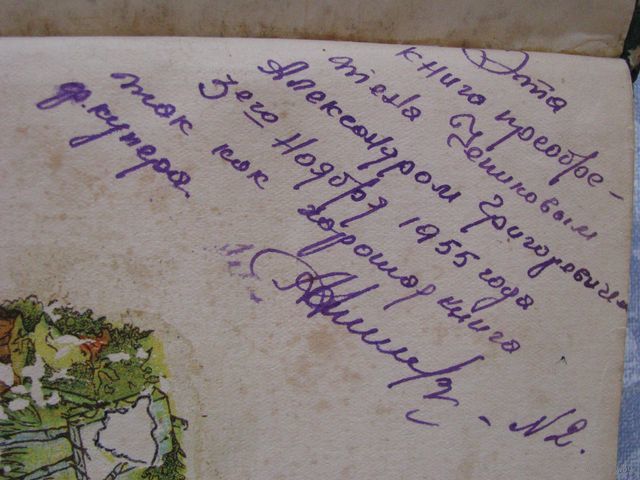 Эта
книга преобре-
тена
Александром Григоровичем
3его Ноября 1955 года
так как хорошая книга
Ф.купера.
- N2.